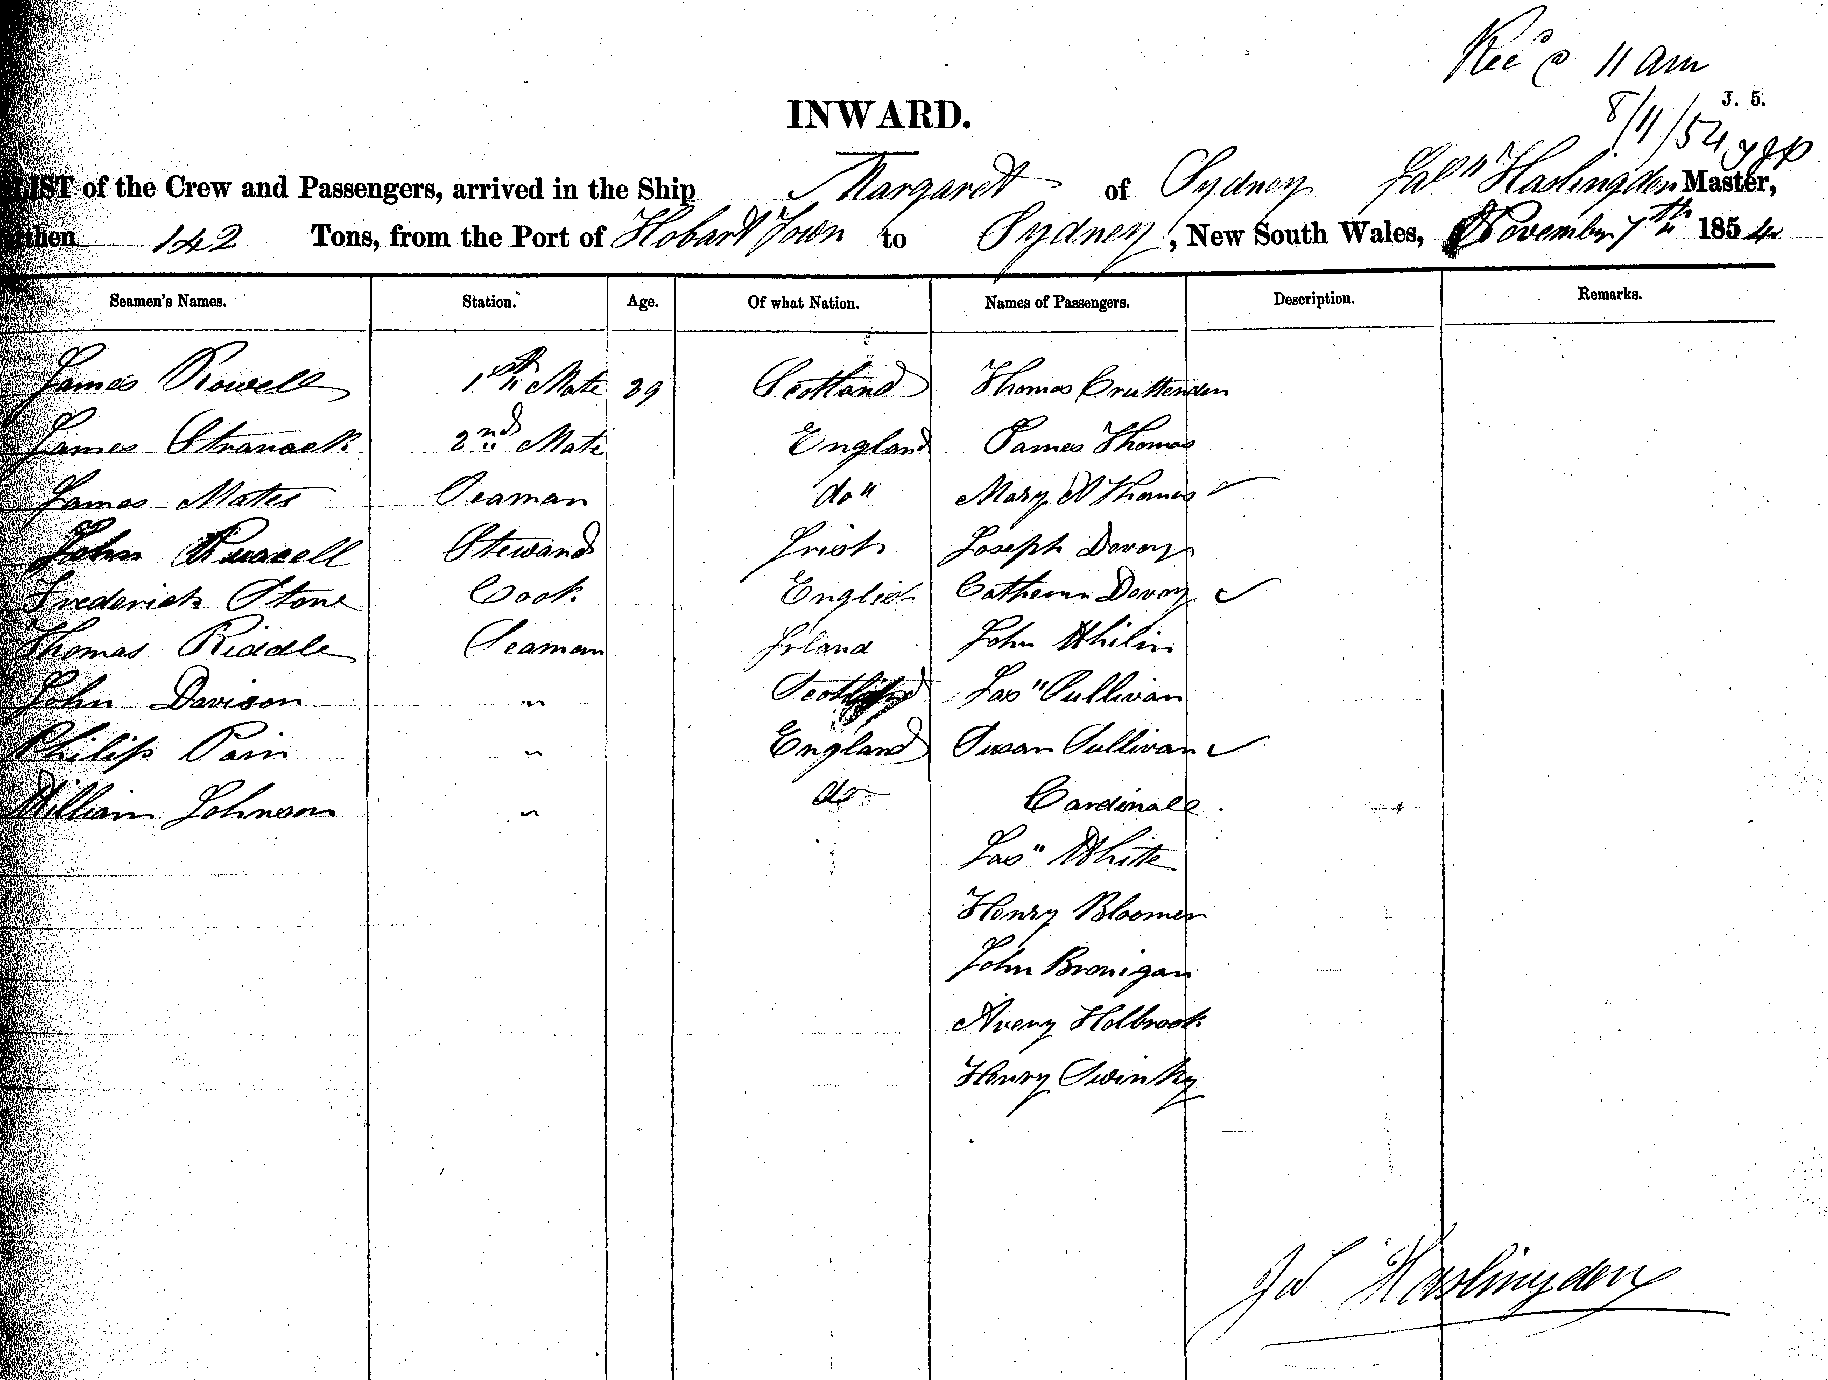 Rec'd @ 11 am
J. 5.
8/11/54
INWARD.
LIST of the Crew and Passengers, arrived in the Ship Margaret of Sydney Jas" Haslingden Master,
Burthen 142 Tons, from the Port of Hobart Town to Sydney, New South Wales, November 7th 1854
Seamen's Names. Station. Age. Of what Nation. Names of Passengers. Description. Remarks.
James Rowell 1st Mate 39 Scotland Thomas Cruttenden
James Stranack 2nd Mate England James Thomas
James Mates Seaman do" Mary A Thomas
John Purcell Steward Irish Joseph Devoy
Frederick Stone Cook English Catherin Devoy
Thomas Riddle Seaman Irland John Whilin
John Davison " Scotland Jas" Sullivan
Philip Pain " England Susan Sullivan
William Johnson " do Cardinall
Jas" White
Henry Bloomer
John Bronigan
Avery Holbrook
Henry Swinky
Jas Haslingden